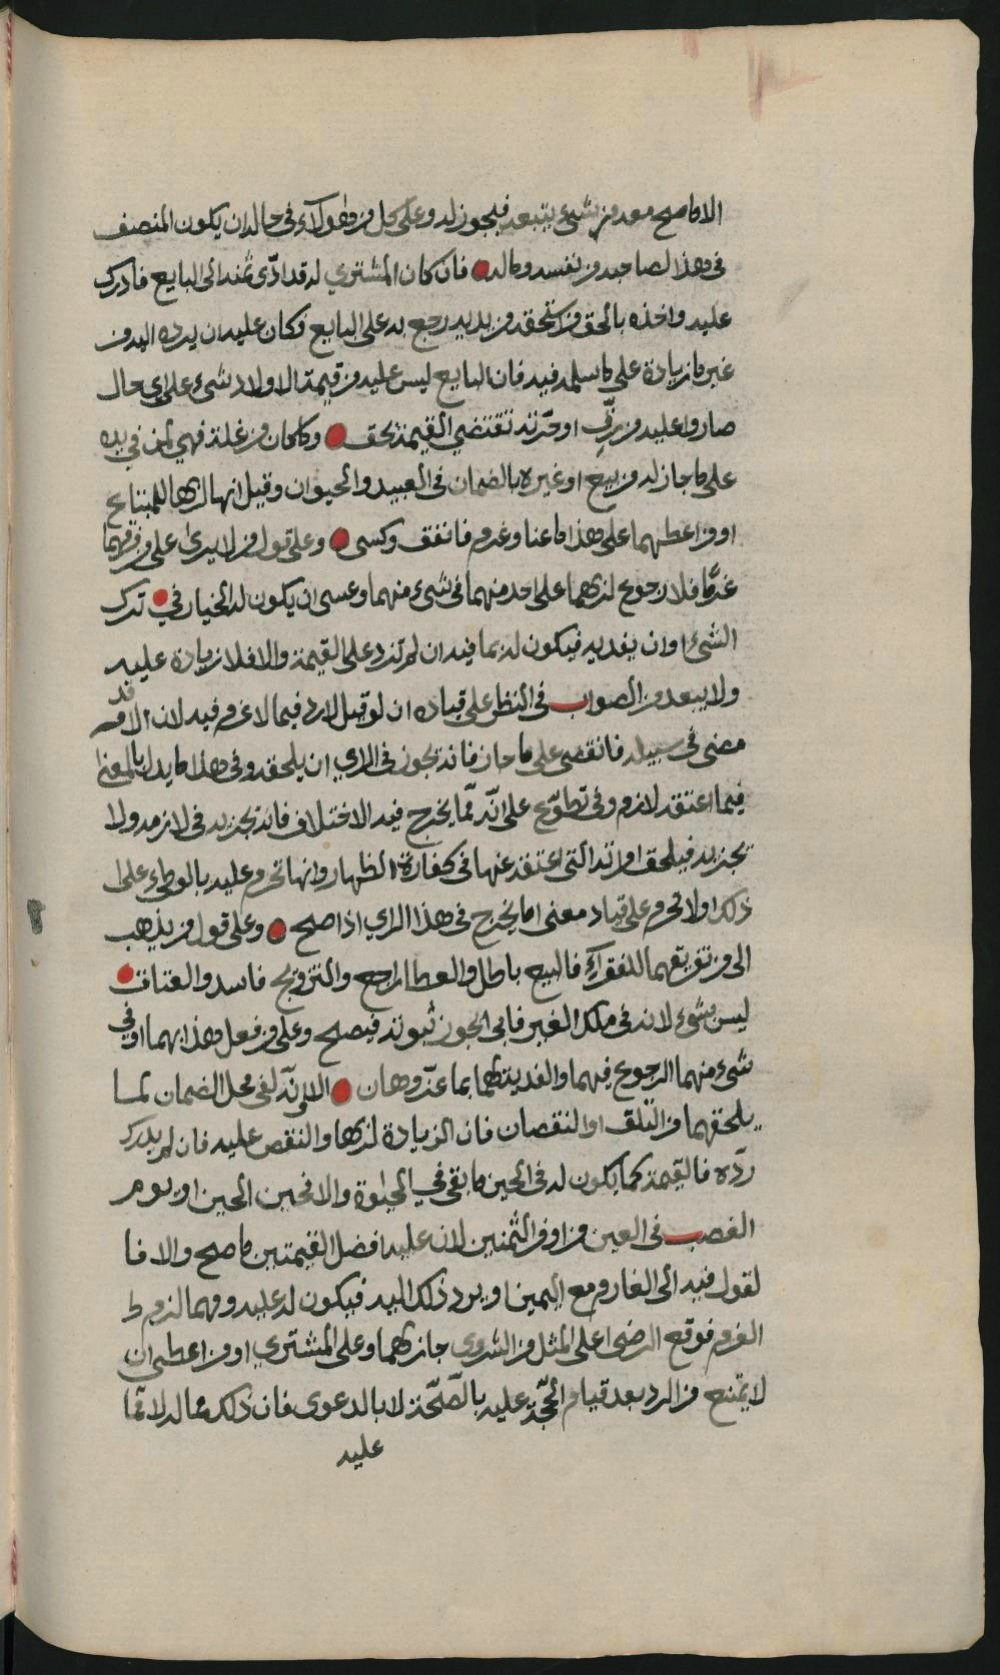 الا ما صح معه من شيء يتبعه فيجوز له وعلى كل من هؤلاء في حاله ان يكون المنصف
في هذا لصاحبه من نفسه وماله فان كان المشتري له قد ادّى ثمنه الى البايع فادرك
عليه واخذه بالحق من يستحقه من يديه رجع به على البايع فكان عليه ان يرده اليه من
غير ما زيادة على ما سلمه فيه فان البايع ليس عليه من قيمة الاولاد شيء على اي حال
صاروا عليه من رقّ او حرّية تقتضي القيمة بحق وما كان من غلة فهي لمن في يده
على ما جاز له من بيع او غيره بالضمان في العبيد والحيوان وقيل انها لربها للمبتايع
او من اعطيهما على هذا ما عنا وغرم فانفق وكسى وعلى قول من لا يرى على من
غرّما فلا رجوع لربهما على احد منهما في شيء منهما وعسى ان يكون له الخيار في ترك
الشيء او ان يفديه فيكون له بما فيه ان لم تزد على القيمة والا فلا زيادة عليه
ولا يبعد من الصواب في النظر على قياده ان لو قيل لا رد فيما لا غرم فيه لان الامر قد
مضى في سبيله فانقضى على ما جاز فانه يجوز في الراي ان يلحقه وفي هذا ما يدل بالمعنى
فيما اعتقه لازم وفي تطوّع على انّه ممّا يخرج فيه الاختلاف فانه يجزيه في لازمه ولا
يجزيه فيلحق امراته التي اعتقه عنها في كفارة الظهار وانها تحرم عليه بالوطء على
ذلك او لا تحرم على قياد معنى ما يخرج في هذا الراي اذا صح وعلى قول من يذهب
الى من تفريقهما للفقراء فالبيع باطل والعطا راجع والتزويج فاسد والعتاق
ليس بشيء لانه في ملك الغير فابى الجوز ثبوته فيصح وعلى من فعل هذا بهما او في
شيء منهما الرجوع فيهما والفدية لهما بما عزّ وهان الا وانّه لفي محل الضمان لما
يلحقهما من التلف او النقصان فان الزيادة لربها والنقص عليه فان لم يدرك
ردّه فالقيمة كما يكون له في الحين ما بقى في الحيوة والا فحين الحين او يوم
الغصب في العين من اوفر الثمنين لان عليه افضل القيمتين ما صح والا فا
لقول فيه الى الغارم مع اليمين او يرد ذلك اليه فيكون له عليه ومهما لزم
الغرم فوقع الرضى على المثل من الشروى جاز لهما وعلى المشتري او من اعطي ان
لا يمتنع من الرد بعد قيام الحجّة عليه بالصّحّة لا بالدعوى فان ذلك ما له لا ممّا
عليه